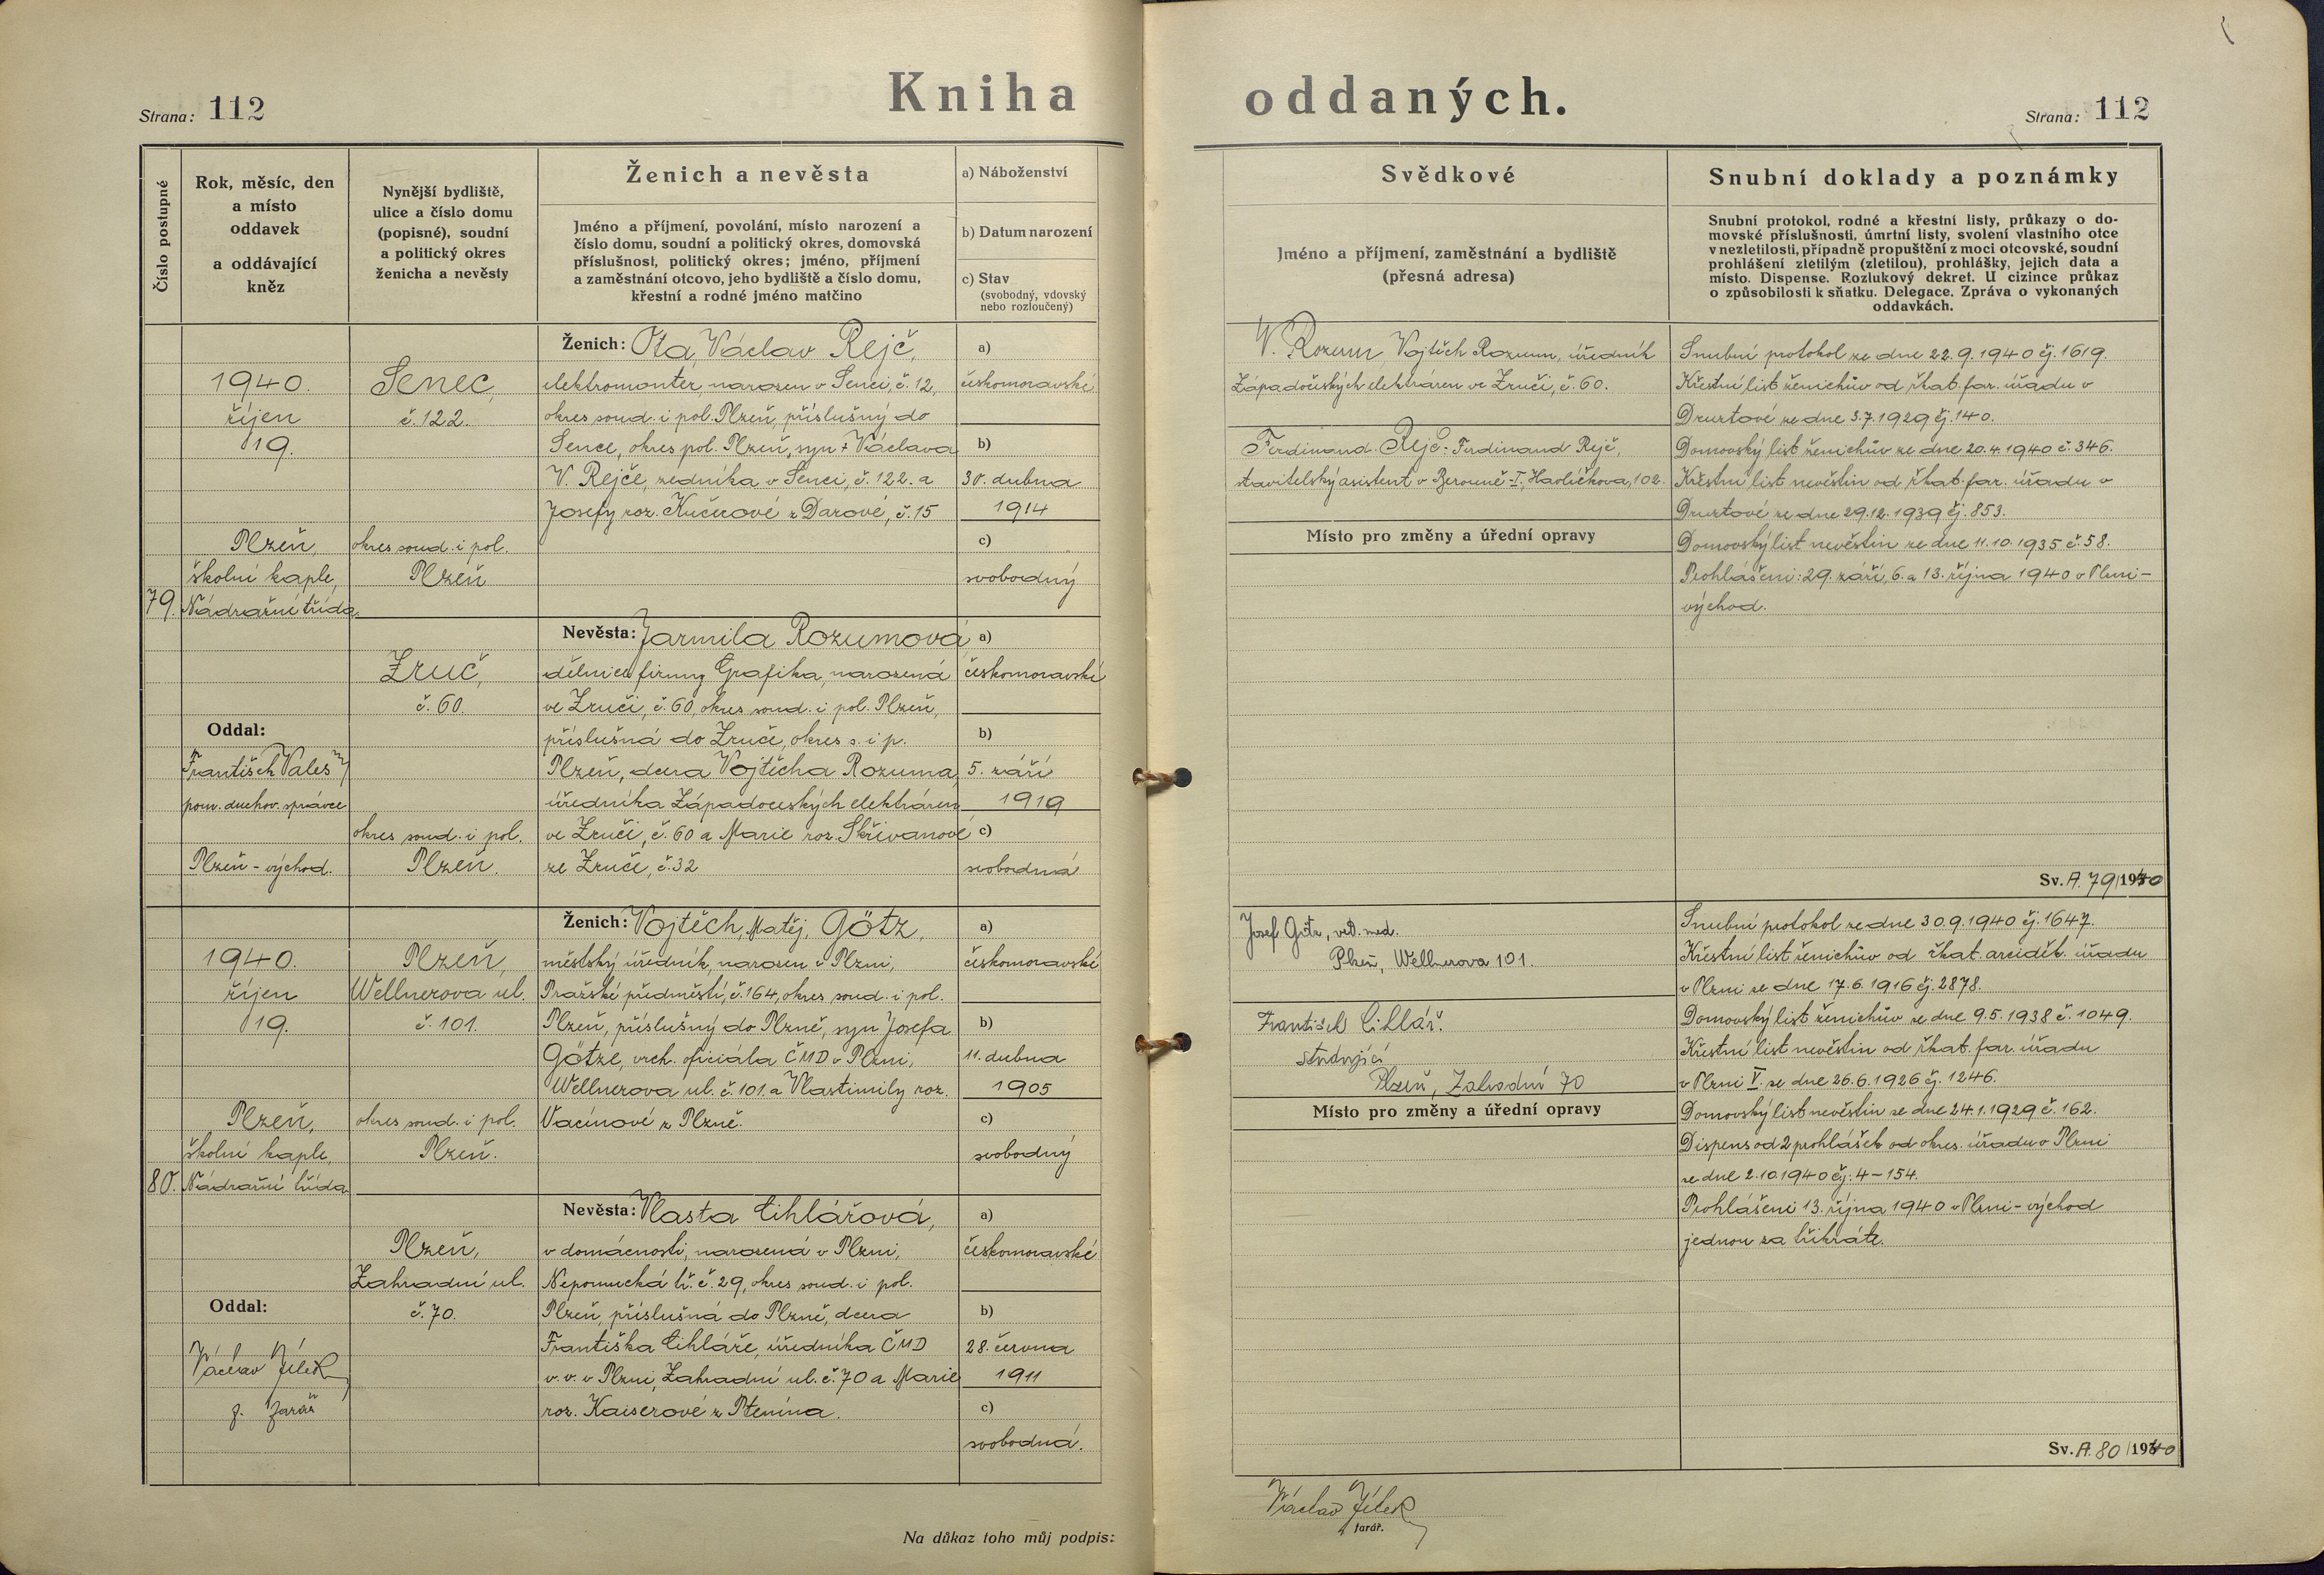 Kniha oddaných.
Strana: 112
Strana: 112
Číslo postupné
Rok, měsíc, den
a místo
oddavek
a oddávající
kněz
Nynější bydliště,
ulice a číslo domu
(popisné), soudní
a politický okres
ženicha a nevěsty
Ženich a nevěsta
Jméno a příjmení, povolání, místo narození a
číslo domu, soudní a politický okres, domovská
příslušnost, politický okres; jméno, příjmení
a zaměstnání otcovo, jeho bydliště a číslo domu,
křestní a rodné jméno matčino
a) Náboženství
b) Datum narození
c) Stav
(svobodný, vdovský
nebo rozloučený)
Svědkové
Jméno a příjmení, zaměstnání a bydliště
(přesná adresa)
Snubní doklady a poznámky
Snubní protokol, rodné a křestní listy, průkazy o do-
movské příslušnosti, úmrtní listy, svolení vlastního otce
v nezletilosti, případně propuštění z moci otcovské, soudní
prohlášení zletilým (zletilou), prohlášky, jejich data a
místo. Dispense. Rozlukový dekret. U cizince průkaz
o způsobilosti k sňatku. Delegace. Zpráva o vykonaných
oddavkách.
79.
1940.
říjen
19.
Plzeň,
školní kaple,
Nádražní třída.
Oddal:
František Valeš
pom. duchov. správce
Plzeň-východ.
Senec,
č. 122.
okres soud. i pol.
Plzeň
Zruč,
č. 60.
okres soud. i pol.
Plzeň.
Ženich: Ota, Václav Rejč,
elektromontér, narozen v Senci, č. 12,
okres soud. i pol. Plzeň, příslušný do
Sence, okres pol. Plzeň, syn † Václava
V. Rejče, zedníka v Senci, č. 122. a
Josefy roz. Kučerové z Darové, č. 15
a)
českomoravské
b)
30. dubna
1914
c)
svobodný
Nevěsta: Jarmila Rozumová,
dělnice firmy Grafika, narozená
ve Zruči, č. 60, okres soud. i pol. Plzeň,
příslušná do Zruče, okres s. i p.
Plzeň, dcera Vojtěcha Rozuma,
úředníka Západočeských elektráren
ve Zruči, č. 60 a Marie roz. Skřivanové
ze Zruče, č. 32
a)
českomoravské
b)
5. září
1919
c)
svobodná
V. Rozum Vojtěch Rozum, úředník
Západočeských elektráren ve Zruči, č. 60.
Ferdinand Rejč - Ferdinand Rejč,
stavitelský asistent v Berouně-I, Havlíčkova, 102.
Místo pro změny a úřední opravy
Snubní protokol ze dne 22.9.1940 čj. 1619.
Křestní list ženichův od řkat. far. úřadu v
Druztové ze dne 3.7.1929 čj. 140.
Domovský list ženichův ze dne 20.4.1940 č. 346.
Křestní list nevěstin od řkat. far. úřadu v
Druztové ze dne 29.12.1939 čj. 853.
Domovský list nevěstin ze dne 11.10.1935 č. 58.
Prohlášeni: 29. září, 6. a 13. října 1940 v Plzni-
východ.
Sv. A. 79/1940
80.
1940.
říjen
19.
Plzeň,
školní kaple,
Nádražní třída
Oddal:
Václav Jílek
f. farář
Plzeň,
Wellnerova ul.
č. 101.
okres soud. i pol.
Plzeň.
Plzeň,
Zahradní ul.
č. 70.
Ženich: Vojtěch, Matěj, Götz,
městský úředník, narozen v Plzni,
Pražské předměstí, č. 164, okres soud. i pol.
Plzeň, příslušný do Plzně, syn Josefa
Götze, vrch. oficiála ČMD v Plzni,
Wellnerova ul. č. 101. a Vlastimily roz.
Vacínové z Plzně.
a)
českomoravské
b)
11. dubna
1905
c)
svobodný
Nevěsta: Vlasta Cihlářová,
v domácnosti, narozená v Plzni,
Nepomucká tř. č. 29, okres soud. i pol.
Plzeň, příslušná do Plzně, dcera
Františka Cihláře, úředníka ČMD
v. v. v Plzni, Zahradní ul. č. 70 a Marie
roz. Kaiserové z Ptenína.
a)
českomoravské
b)
28. června
1911
c)
svobodná.
Josef Götz, vet. med.
Plzeň, Wellnerova 101.
František Cihlář.
studující
Plzeň, Zahradní 70
Místo pro změny a úřední opravy
Snubní protokol ze dne 30.9.1940 čj. 1647.
Křestní list ženichův od řkat. arciděk. úřadu
v Plzni ze dne 17.6.1916 čj. 2878.
Domovský list ženichův ze dne 9.5.1938 č. 1049.
Křestní list nevěstin od řkat. far. úřadu
v Plzni V. ze dne 26.6.1926 čj. 1246.
Domovský list nevěstin ze dne 24.1.1929 č. 162.
Dispens od 2 prohlášek od okres. úřadu v Plzni
ze dne 2.10.1940 čj. 4-154.
Prohlášeni 13. října 1940 v Plzni-východ
jednou za třikráte.
Sv. A. 80/1940
Na důkaz toho můj podpis:
Václav Jílek
farář.